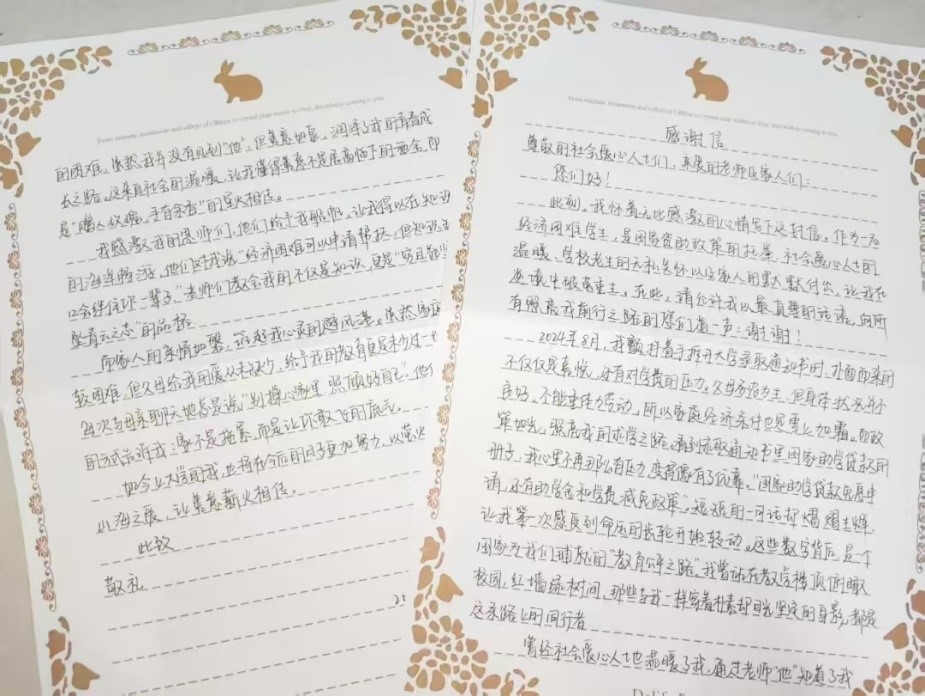 感谢信
尊敬的社会爱心人士们,亲爱的老师及家人们:
您们好!
此刻,我怀着无比感激的心情写下这封信。作为一名
经济困难学生,是国家资助政策的托举、社会爱心人士的
温暖、学校老生的无私关怀以及家人的默默付出,让我在
逆境中破茧重生。在此,请允许我以最真挚的话语,向所
有照亮我前行之路的您们道一声:谢谢!
2024年8月,我颤抖着手拆开大学录取通知书时,扑面而来的
不仅仅是喜悦,还有对学费的压力。父母务农为生,但身体状况并不
良好,不能重体力劳动,所以家庭经济条件也是雪上加霜。但政
策如光,照亮我的求学之路。看到录取通知书里国家助学贷款的
册子,我心里不再那么有压力,变得像有了依靠。"国家助学贷款免息申
请,还有助学金和学费减免政策",短短的一句话却熠熠生辉,
让我第一次感受到命运的齿轮开始转动。这些数字背后,是一个
国家为我们铺就的"教育公平之路"。我曾站在教学楼顶俯瞰
校园,红墙绿树间,那些与我一样穿着朴素却目光坚定的身影,都是
这条路上的同行者
曾经社会爱心人士也温暖了我,通过老师"他"知道了我
的困难,虽然我并没有见到"他",但善意如露,润泽了我的青春成
长之路。这来自社会的温暖,让我懂得善意不是居高临下的施舍,而
是"赠人玫瑰,手有余香"的星火相传。
我感激我的恩师们,他们给予我帮忙,让我得以在知识
的海洋畅游,他们对我说"经济困难可以申请帮扶,但知识
会伴你一辈子。"老师们教会我的不仅是知识,更是"穷且益
坚青云之志"的品格
而家人的亲情如磐,筑起我心灵的避风港。虽然家庭
较困难,但父母给我的爱从未缺少,给予我的教育更是未少过一
每次与母亲聊天她总是说"别操心家里,照顾好自己",他们
的方式告诉我:家不是拖累,而是让你敢飞的底气。
如今上大学的我,也将在今后的日子更加努力,以萤火
山海之展,让善意薪火相传。
此致
敬礼